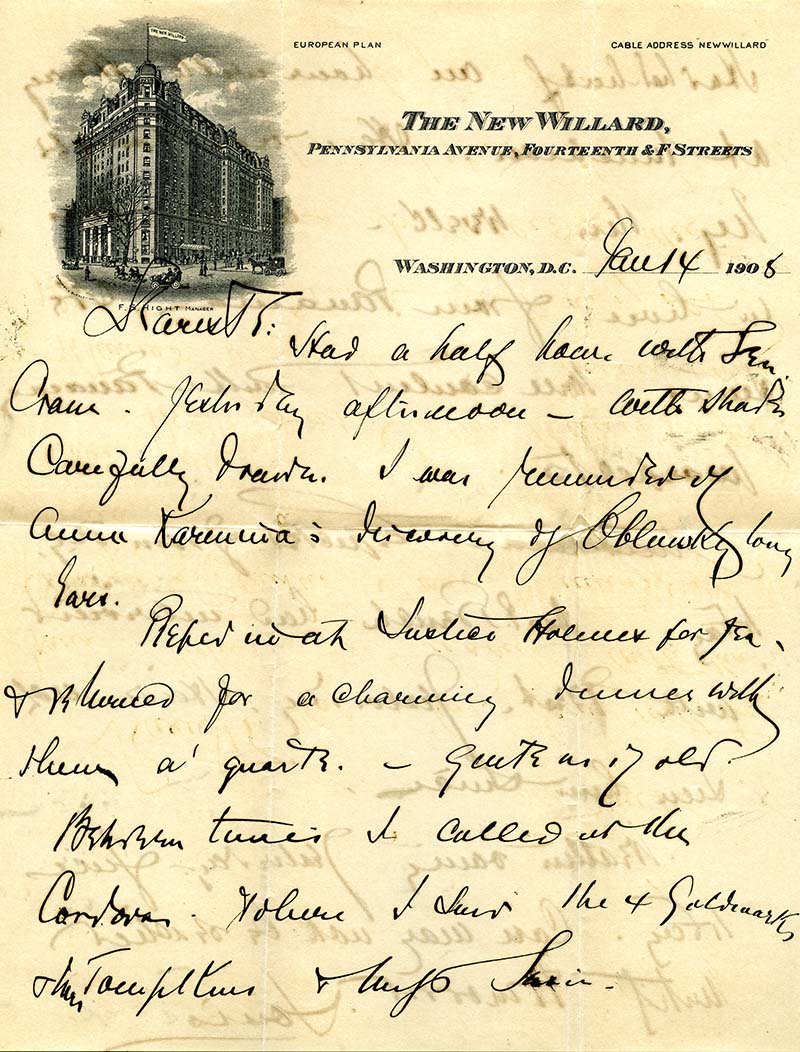 THE NEW WILLARD
EUROPEAN PLAN
CABLE ADDRESS NEWWILLARD
THE NEW WILLARD,
PENNSYLVANIA AVENUE, FOURTEENTH & F STREETS
WASHINGTON, D.C. Jan 14 1908
F. S. HIGHT MANAGER
Dearest:
Had a half hour with Sen.
Crane. Yesterday afternoon — with shades
Carefully drawn. I was reminded of
Anna Karenina's discovery of Oblonsky long
Ears.
in at Justice Holmes for Tea,
& returned for a charming dinner with
them a' quatre. — Quite as of old.
Between times I called at the
Cordova. Where I saw the 4 Goldmarks
& Tompkins &